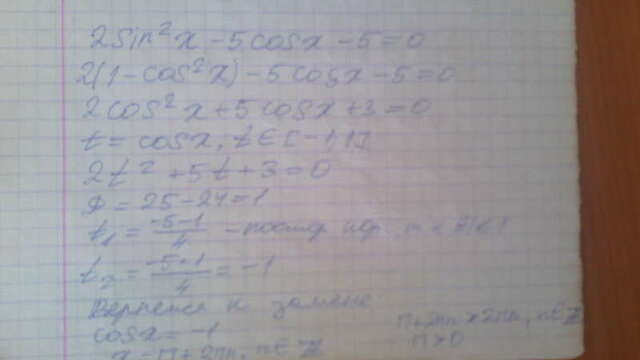 2sin²x - 5cosx - 5 = 0
2(1 - cos²x) - 5cosx - 5 = 0
2cos²x + 5cosx + 3 = 0
t = cosx, t∈[-1;1]
2t² + 5t + 3 = 0
D = 25 - 24 = 1
t₁ = (-5-1)/4 - т.к.
t₂ = (-5+1)/4 = -1
Вернемся к замене
cosx = -1
x = π + 2πn, n∈Z
π + 2πn 2πn, n∈Z